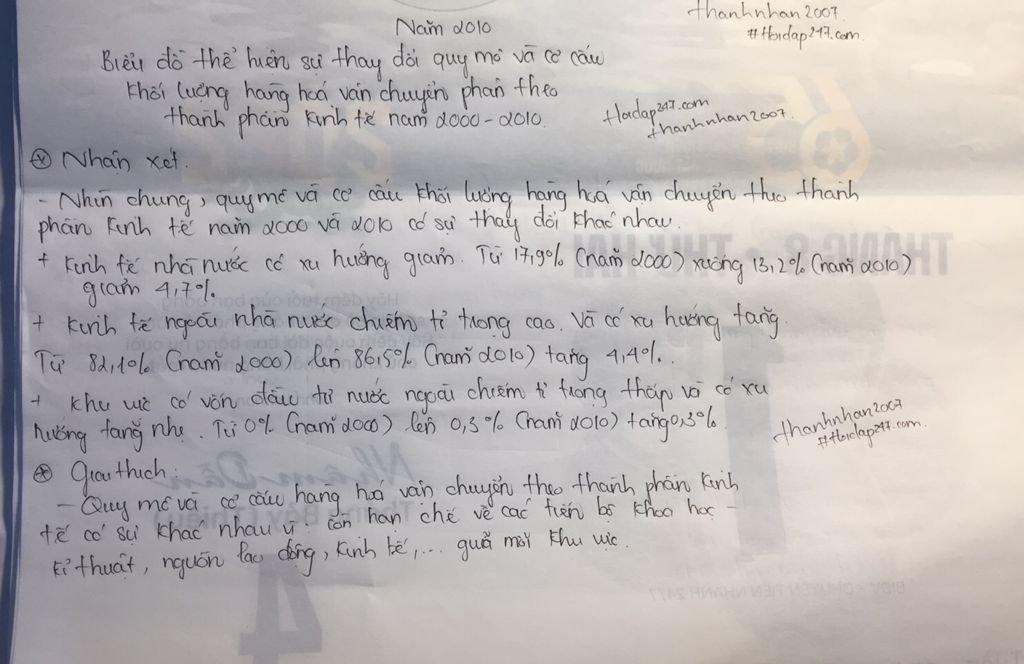 thanhnhan2007.
#Hoidap247.com.
Năm 2010
Biểu đồ thể hiện sự thay đổi quy mô và cơ cấu
khối lượng hàng hoá vận chuyển phân theo
thành phần kinh tế năm 2000-2010.
Hoidap247.com
thanhnhan2007.
* Nhận xét.
- Nhìn chung, quy mô và cơ cấu khối lượng hàng hoá vận chuyển theo thành
phần kinh tế năm 2000 và 2010 có sự thay đổi khác nhau.
+ Kinh tế nhà nước có xu hướng giảm. Từ 17,9% (năm 2000) xuống 13,2% (năm 2010)
giảm 4,7%.
+ Kinh tế ngoài nhà nước chiếm tỉ trọng cao. Và có xu hướng tăng.
Từ 82,1% (năm 2000) lên 86,5% (năm 2010) tăng 4,4%.
+ Khu vực có vốn đầu tư nước ngoài chiếm tỉ trọng thấp và có xu
hướng tăng nhẹ. Từ 0% (năm 2000) lên 0,3% (năm 2010) tăng 0,3%.
thanhnhan2007
#Hoidap247.com.
* Giải thích:
- Quy mô và cơ cấu hàng hoá vận chuyển theo thành phần kinh
tế có sự khác nhau vì: còn hạn chế về các tiến bộ khoa học -
kĩ thuật, nguồn lao động, kinh tế,... giữa mỗi khu vực.
THÁNG 8 - THỨ HAI
Nhâm Dần
Tháng Bảy (Thiếu)
4